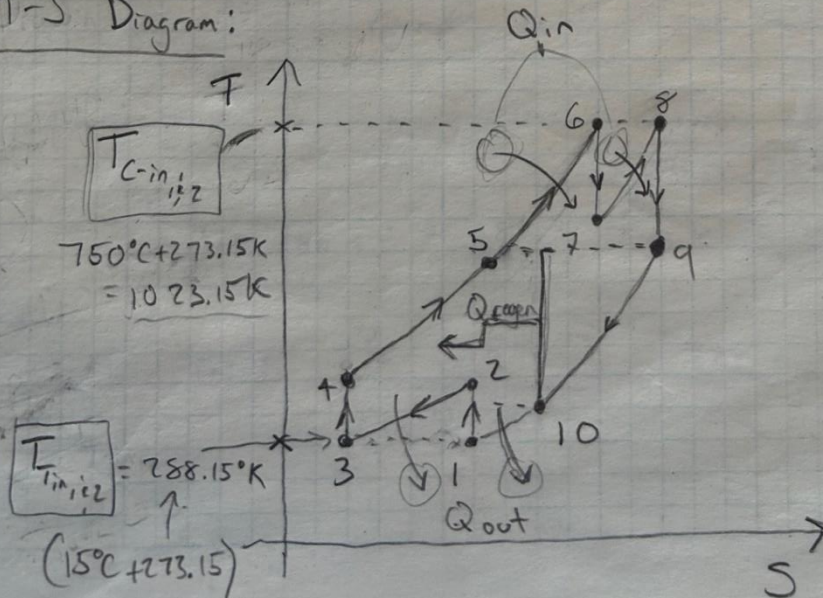 T-S Diagram:
Qin
T
6
8
T C-in,i;2
750°C+273.15K
= 1023.15K
5
7
9
Qregen
4
2
10
T Tin,i;2 = 288.15°K
3
1
Qout
(15°C+273.15)
S